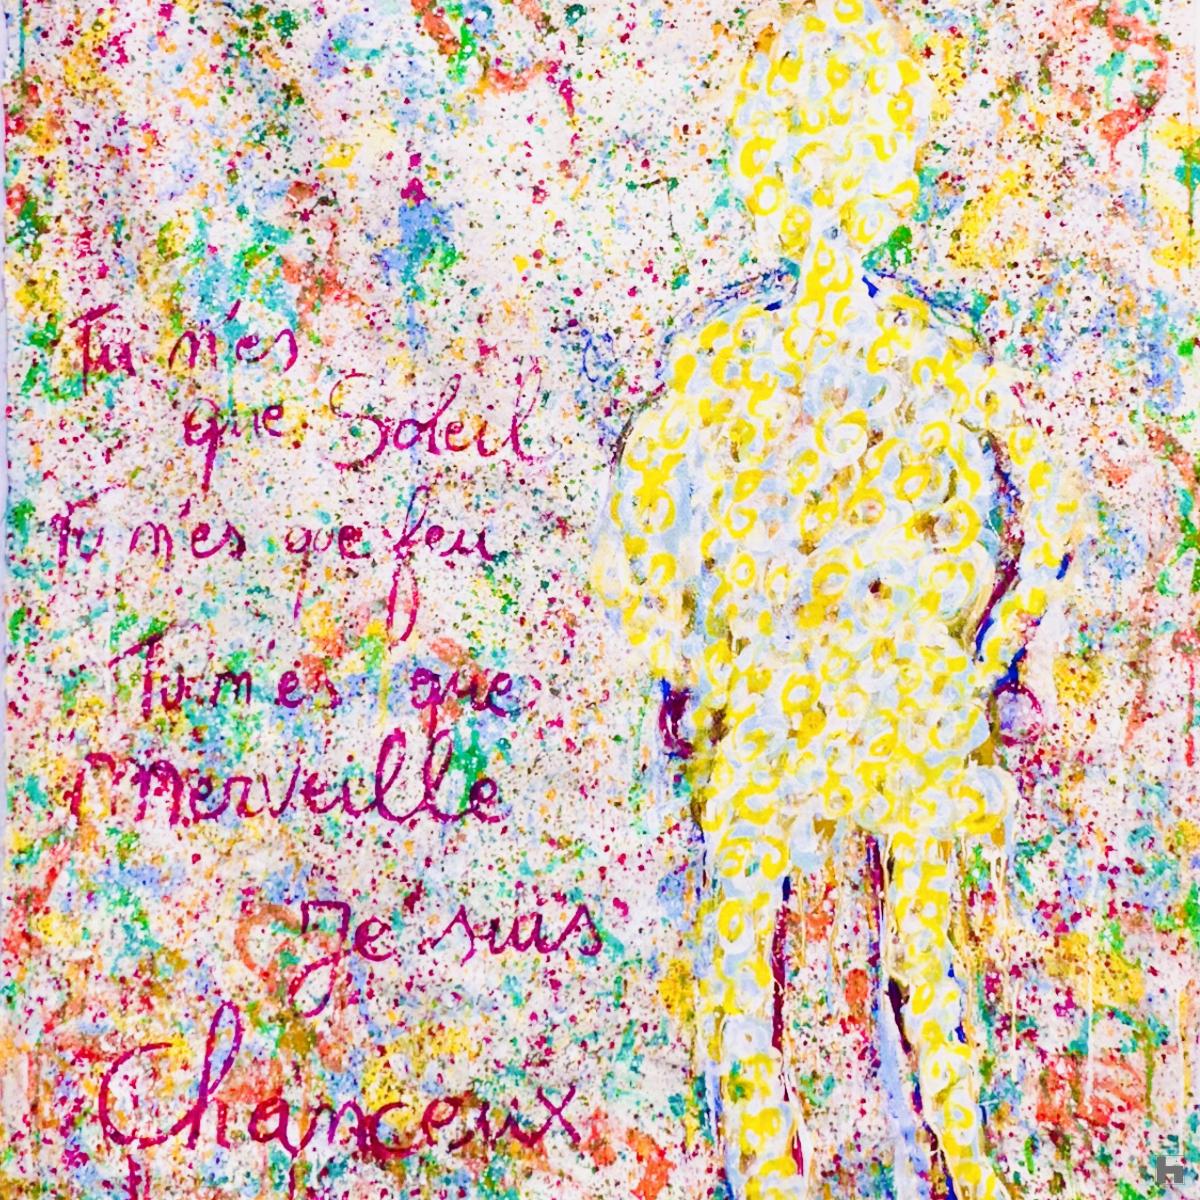 Tu n'es
que Soleil
Tu n'es que feu
Tu n'es que
merveille
Je suis
Chanceux